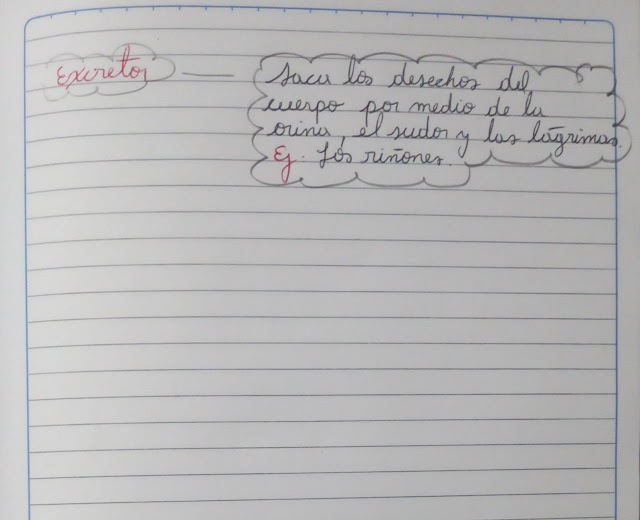 Excretor
Saca los desechos del
cuerpo por medio de la
orina, el sudor y las lágrimas.
Ej. Los riñones.